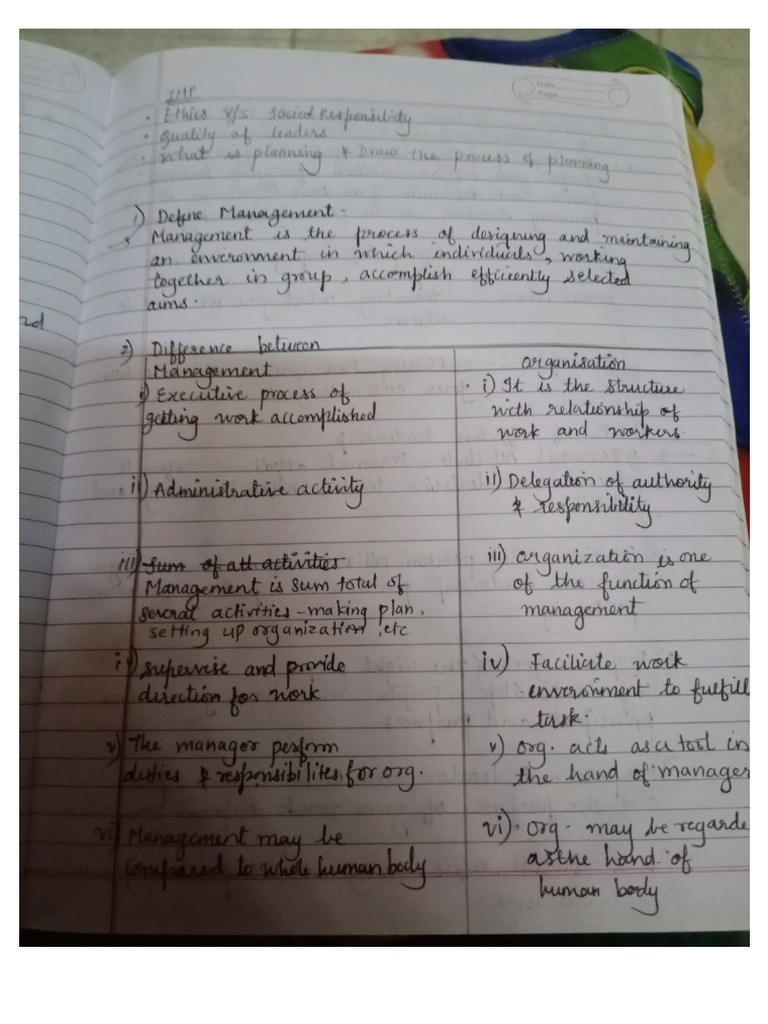 IMP
• Ethics V/s Social Responsibility
• Quality of leaders
• What is planning & Draw the process of planning.
1) Define Management -
→ Management is the process of designing and maintaining
an environment in which individuals, working
together in group, accomplish efficiently selected
aims.
2) Difference between
Management
i) Executive process of
getting work accomplished
ii) Administrative activity
iii) Sum of all activities
Management is sum total of
several activities - making plan,
setting up organization, etc
iv) Supervise and provide
direction for work
v) The manager perform
duties & responsibilites for org.
vi) Management may be
compared to whole human body
Organisation
i) It is the structure
with relationship of
work and workers.
ii) Delegation of authority
& responsibility
iii) Organization is one
of the function of
management
iv) Faciliate work
environment to fulfill
task.
v) Org. acts as a tool in
the hand of manager
vi) Org. may be regarde
as the hand of
human body
Date
Page